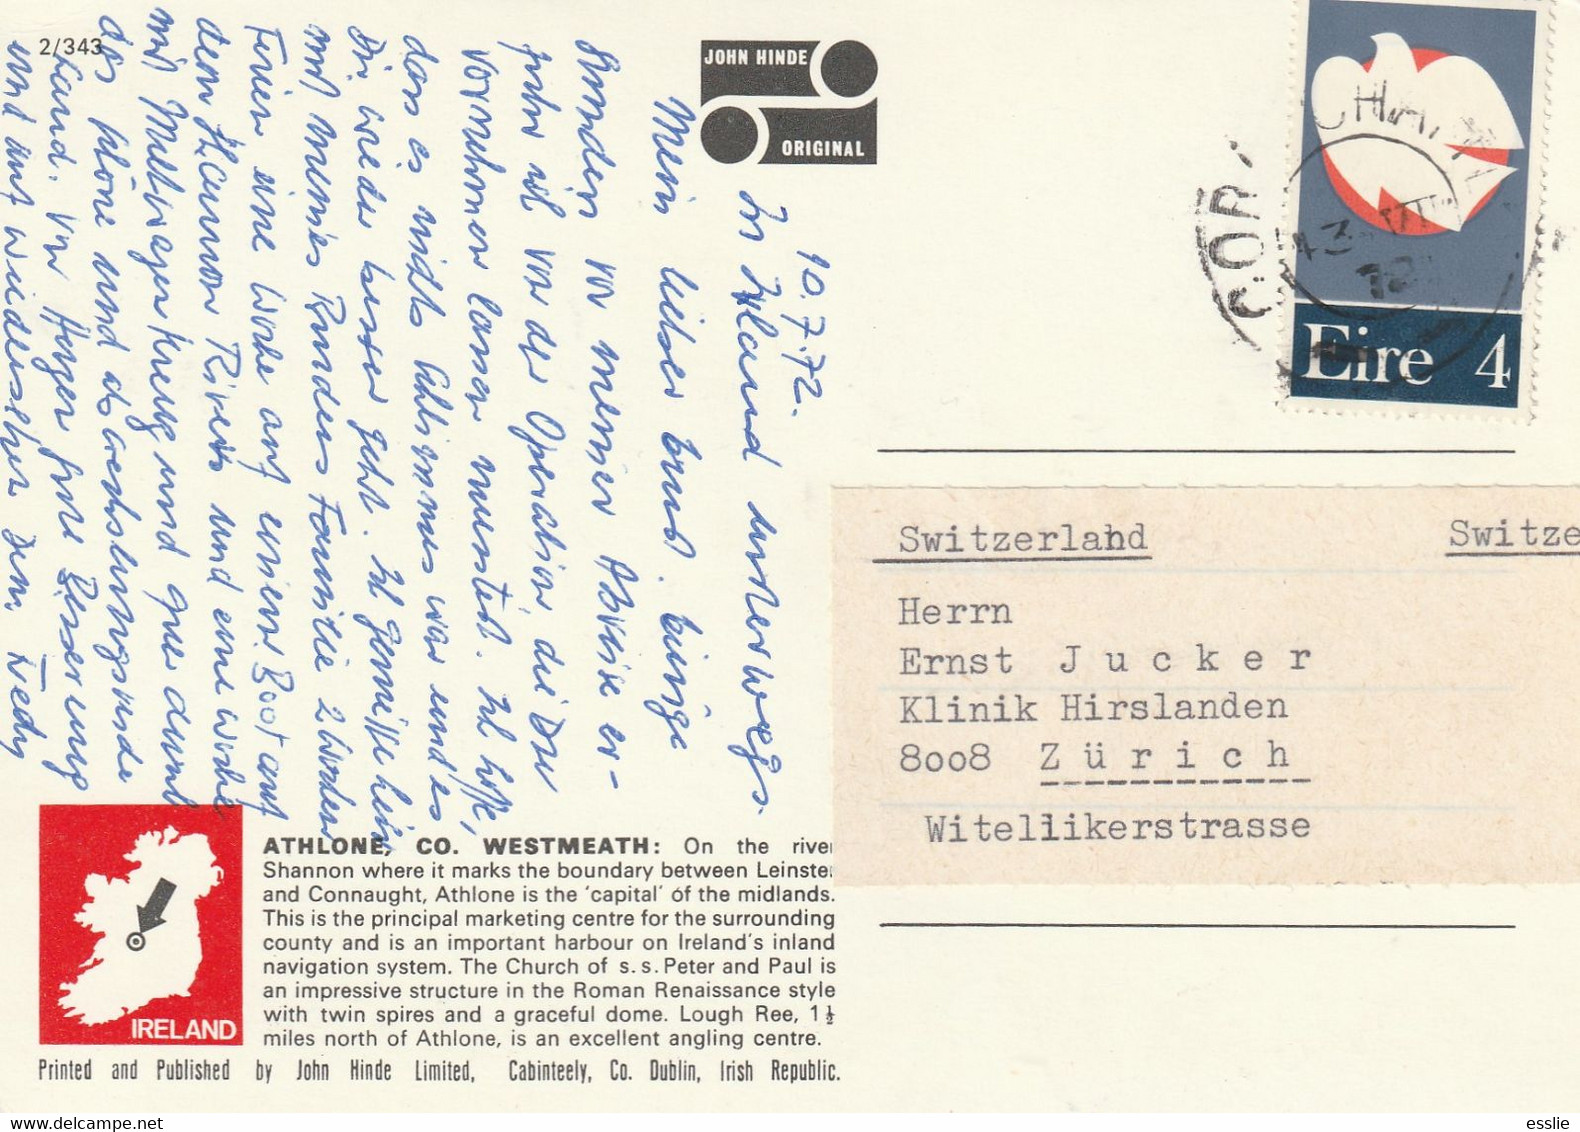 2/343
JOHN HINDE
ORIGINAL
10.7.72.
In Irland unterwegs.
Mein lieber Ernst. Einige
Stunden vor meiner Abreise er-
fuhr ich von der Operation die Du
vornehmen lassen musstest. Ich hoffe,
dass es nichts schlimmes war und es
Dir wieder besser geht. Ich geniesse hier
mit meines Bruders Familie 2 Wochen
Ferien eine Woche auf einem Boot auf
dem Shannon River und eine Woche
mit Mietwagen kreuz und quer durchs
das schöne und abwechslungsreiche
Land. Von Herzen gute Besserung
und auf wiedersehen Dein Fredy
CORK
13 VII 72
Eire 4
Switzerland
Switze
Herrn
Ernst Jucker
Klinik Hirslanden
8008 Zürich
Witellikerstrasse
IRELAND
ATHLONE, CO. WESTMEATH: On the river
Shannon where it marks the boundary between Leinster
and Connaught, Athlone is the 'capital' of the midlands.
This is the principal marketing centre for the surrounding
county and is an important harbour on Ireland's inland
navigation system. The Church of s.s. Peter and Paul is
an impressive structure in the Roman Renaissance style
with twin spires and a graceful dome. Lough Ree, 1½
miles north of Athlone, is an excellent angling centre.
Printed and Published by John Hinde Limited, Cabinteely, Co. Dublin, Irish Republic.
esslie